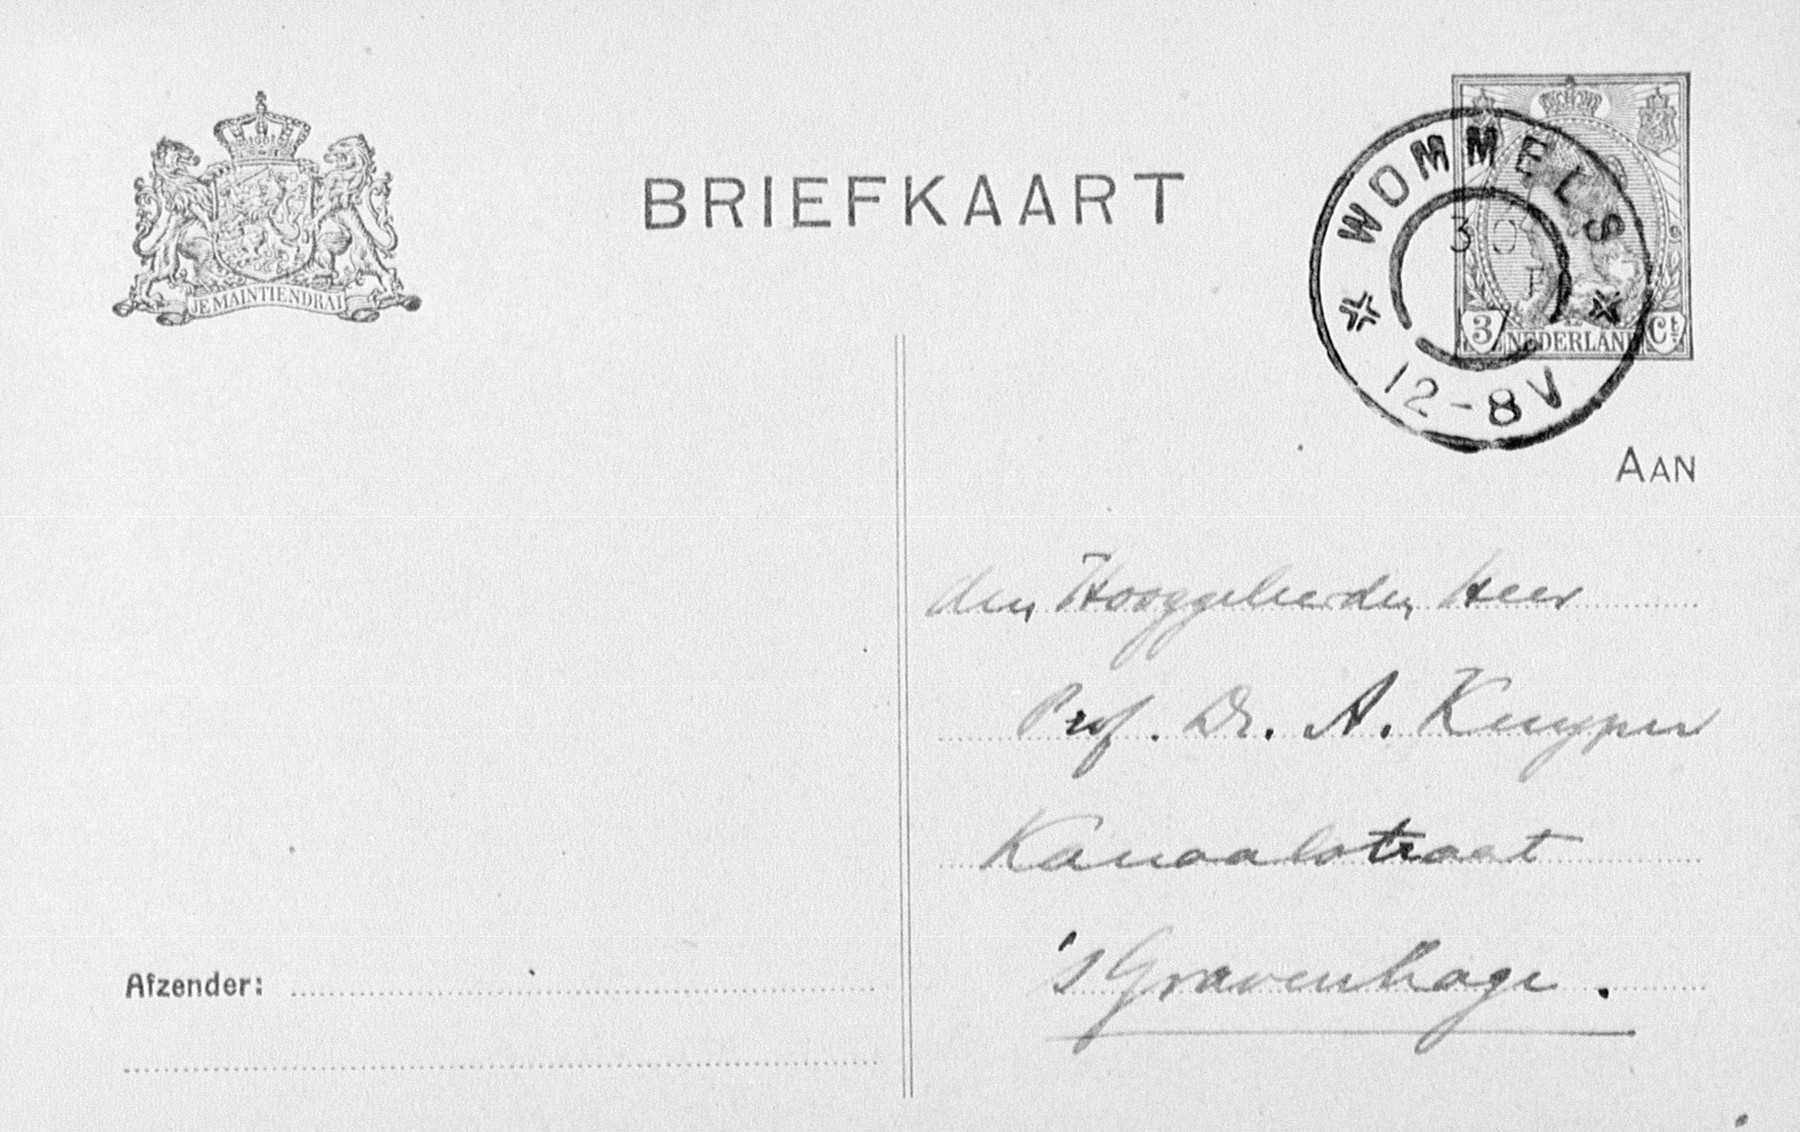 BRIEFKAART
JE MAINTIENDRAI
WOMMELS
3 O
12-8V
3 NEDERLAND Ct
AAN
den Hooggeleerden Heer
Prof. Dr. A. Kuyper
Kanaalstraat
's Gravenhage.
Afzender: